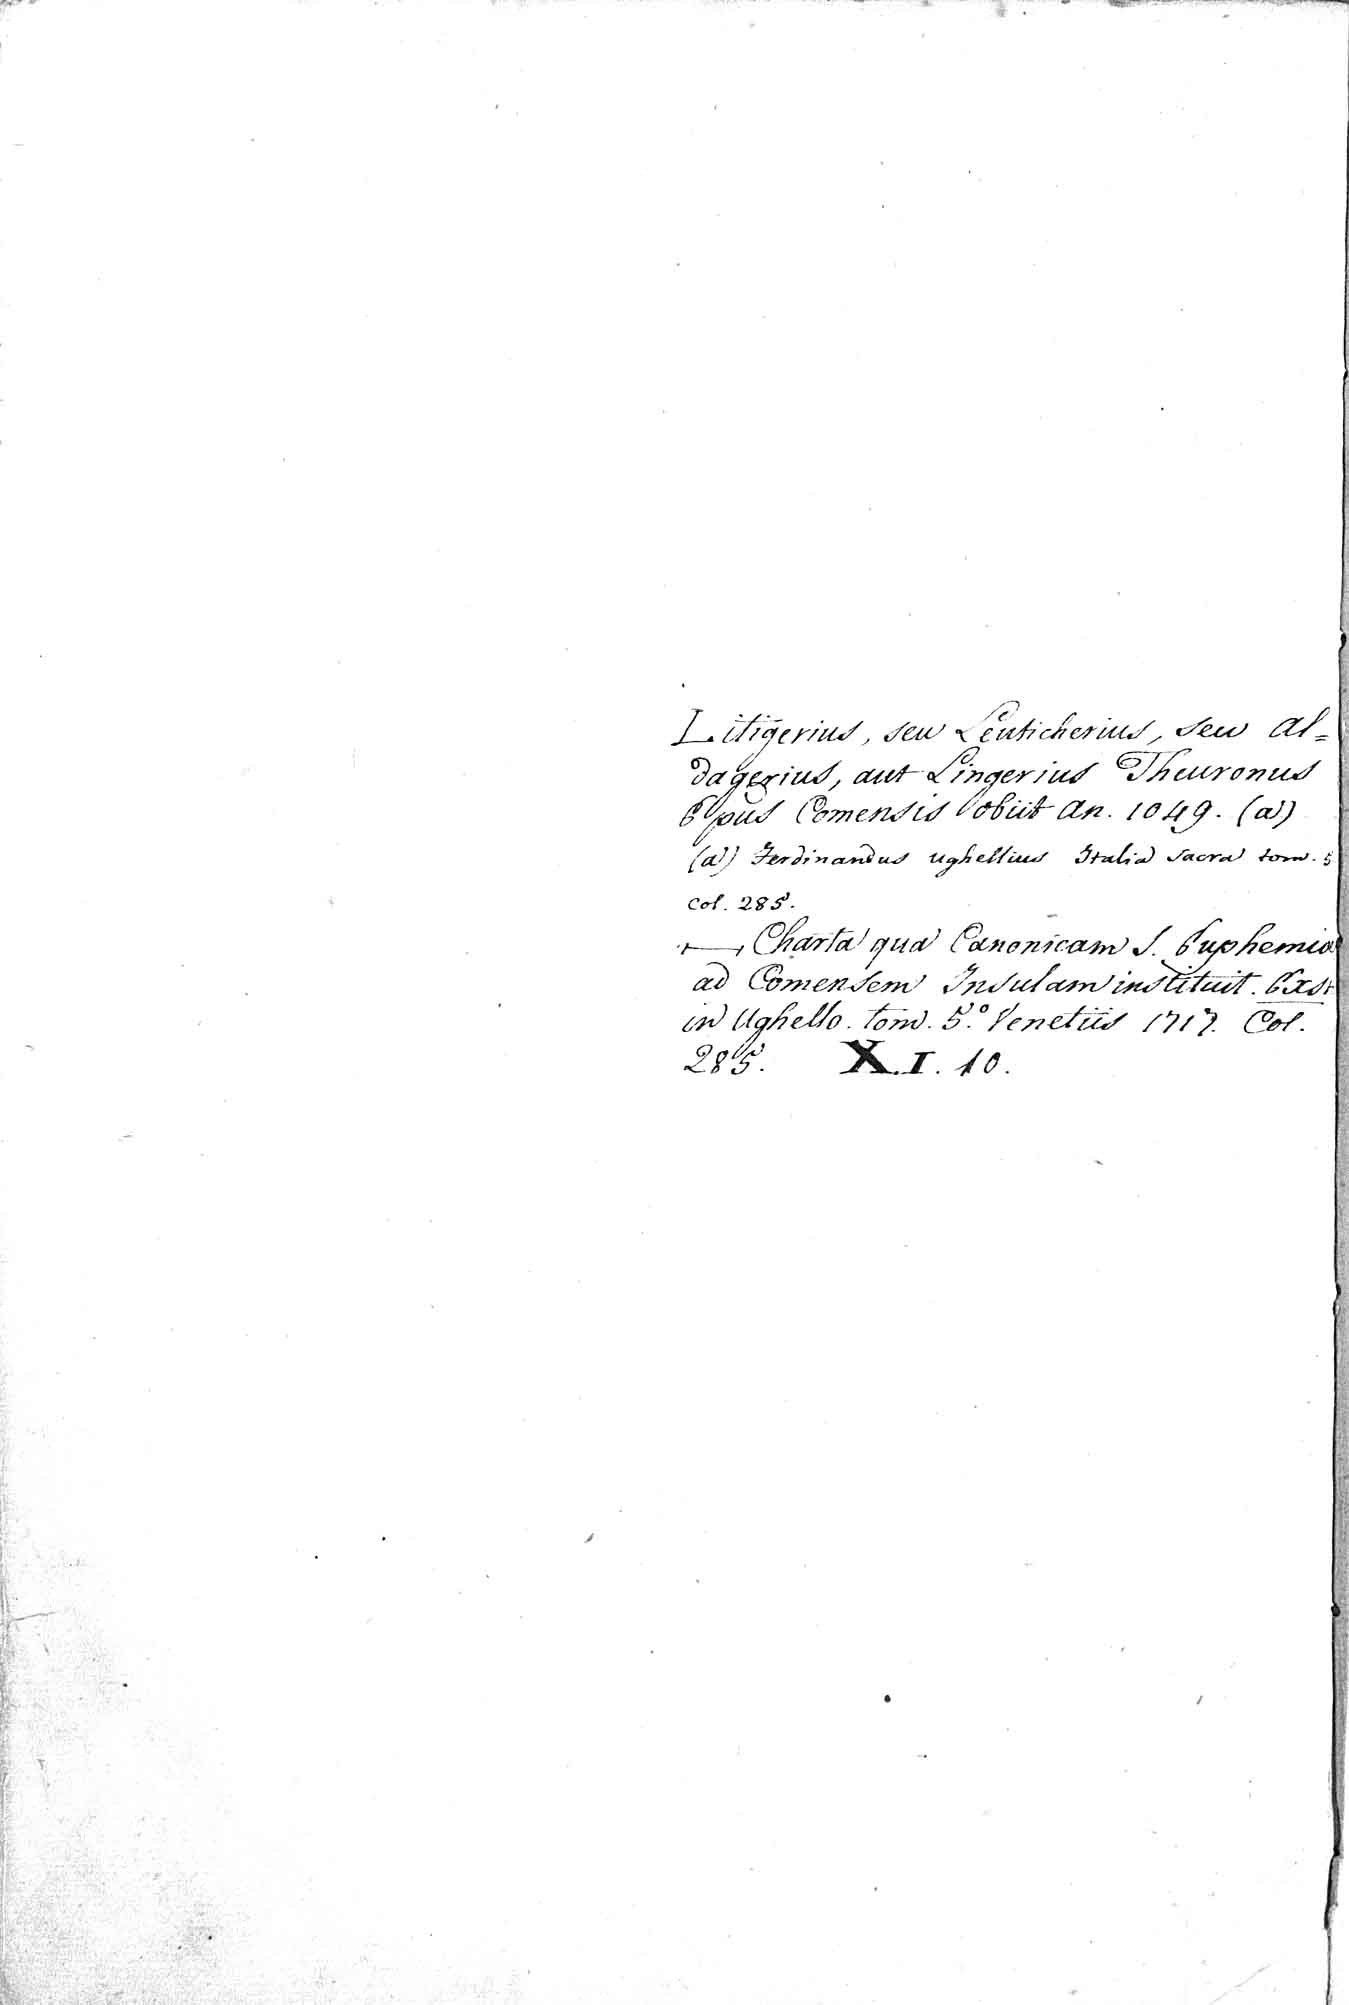 Litigerius, seu Leuticherius, seu Al=
dagerius, aut Lingerius Theuronus
Epus Comensis obiit An. 1049. (a)
(a) Ferdinandus Ughellius Italia Sacra tom. 5
Col. 285.
Charta qua Canonicam S. Euphemia
ad Comensem Insulam instituit. Exst
in Ughello. tom. 5.º Venetiis 1717. Col.
285. X.I.10.